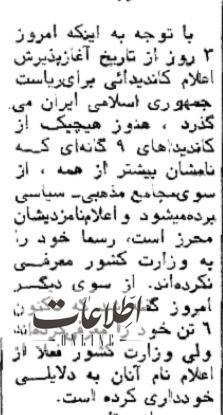 با توجه به اینکه امروز
۳ روز از تاریخ آغازپذیرش
اعلام کاندیدائی برای‌ریاست
جمهوری اسلامی ایران می
گذرد ، هنوز هیچیک از
کاندیداهای ۹ گانه‌ای کـه
نامشان بیشتر از همه ، از
سوی‌مجامع مذهبی‌ـ سیاسی
برده‌میشود و اعلام‌نامزدیشان
محرز است، رسما خود را
به وزارت کشور معرفــی
نکرده‌اند. از سوی دیگــر
امروز
۶ تن خود را
اطلاعات
ONLINE
ولی وزارت کشور فعلا از
اعلام نام آنان به دلایلــی
خودداری کرده است.